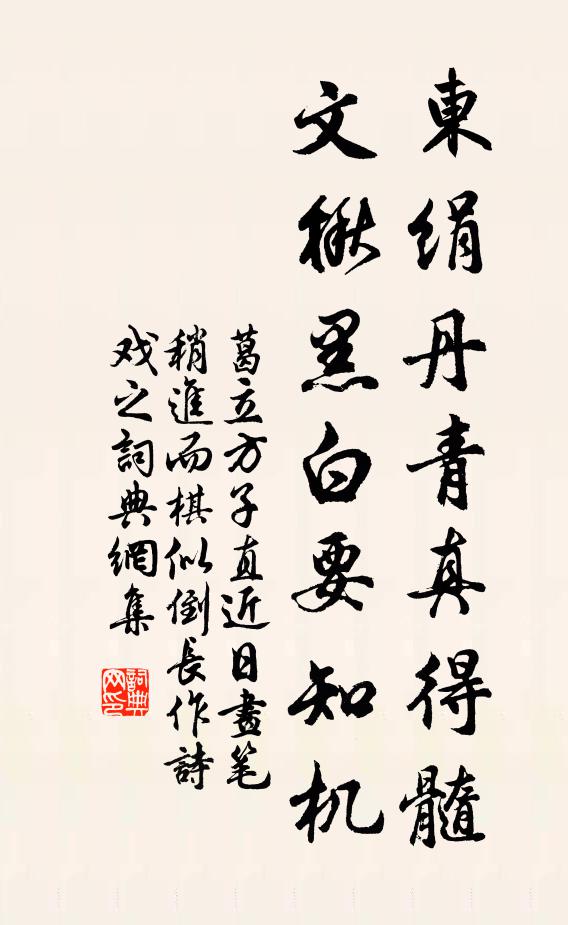 東絹丹青真得髓
文楸黑白要知机
葛立方子直近日畫笔
稍進而棋似倒長作詩
戏之詞典網集
詞典网印